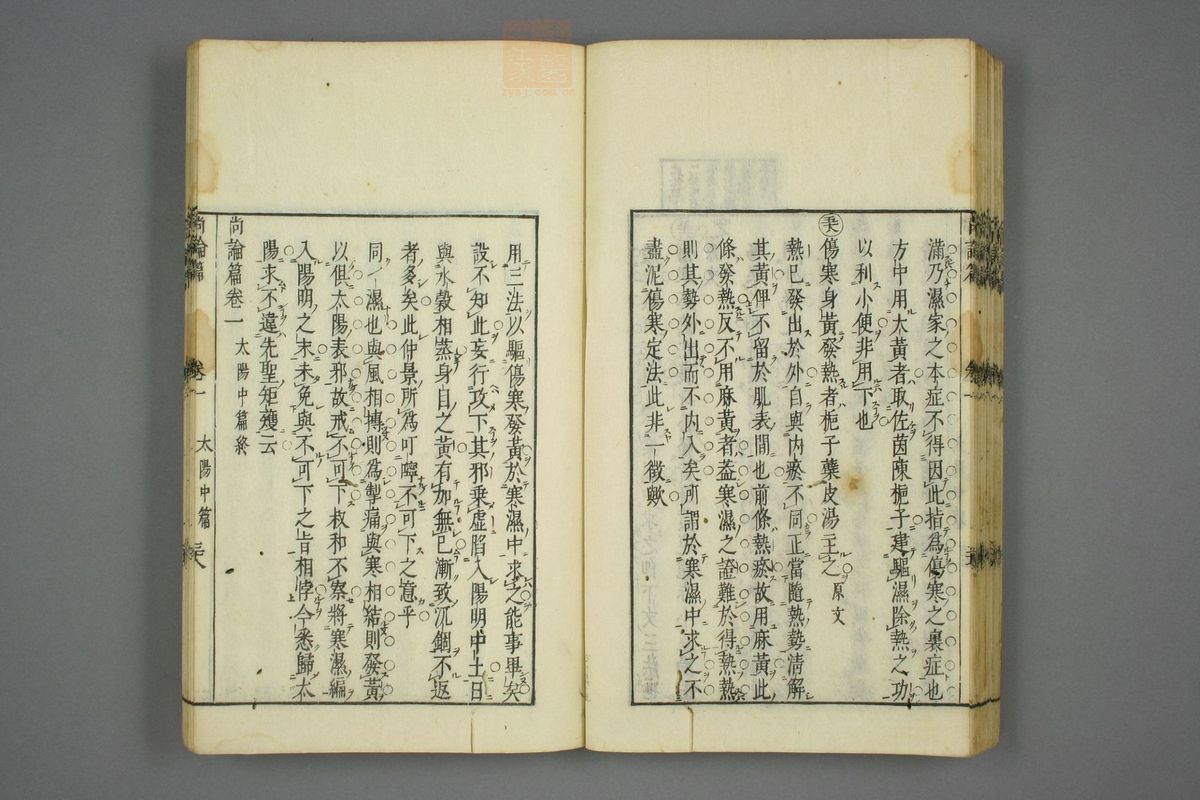 滿乃濕家之本症不得因此指為傷寒之裏症也
方中用大黃者取佐茵蔯梔子建驅濕除熱之功
以利小便非用下也
傷寒身黃發熱者梔子蘗皮湯主之 原文
熱已發出於外自與内瘀不同正當隨熱勢清解
其黃俾不留於肌表間也前條熱瘀故用麻黃此
條發熱反不用麻黃者蓋寒濕之證難於得熱熱
則其勢外出而不内入矣所謂於寒濕中求之不
盡泥傷寒定法此非一徵歟
用三法以驅傷寒發黃於寒濕中求之能事畢矣
設不知此妄行攻下其邪乗虛陷入陽明中土日
與水穀相蒸身目之黃有加無已漸致沉錮不返
者多矣此仲景所為叮嚀不可下之意乎
同一濕也與風相摶則為掣痛與寒相結則發黃
以俱太陽表邪故戒不可下叔和不察將寒濕編
入陽明之末未免與不可下之旨相悖今悉歸太
陽求不違先聖矩矱云
尚論篇卷一 太陽中篇終
尚論篇 卷一 太陽中篇 二十八